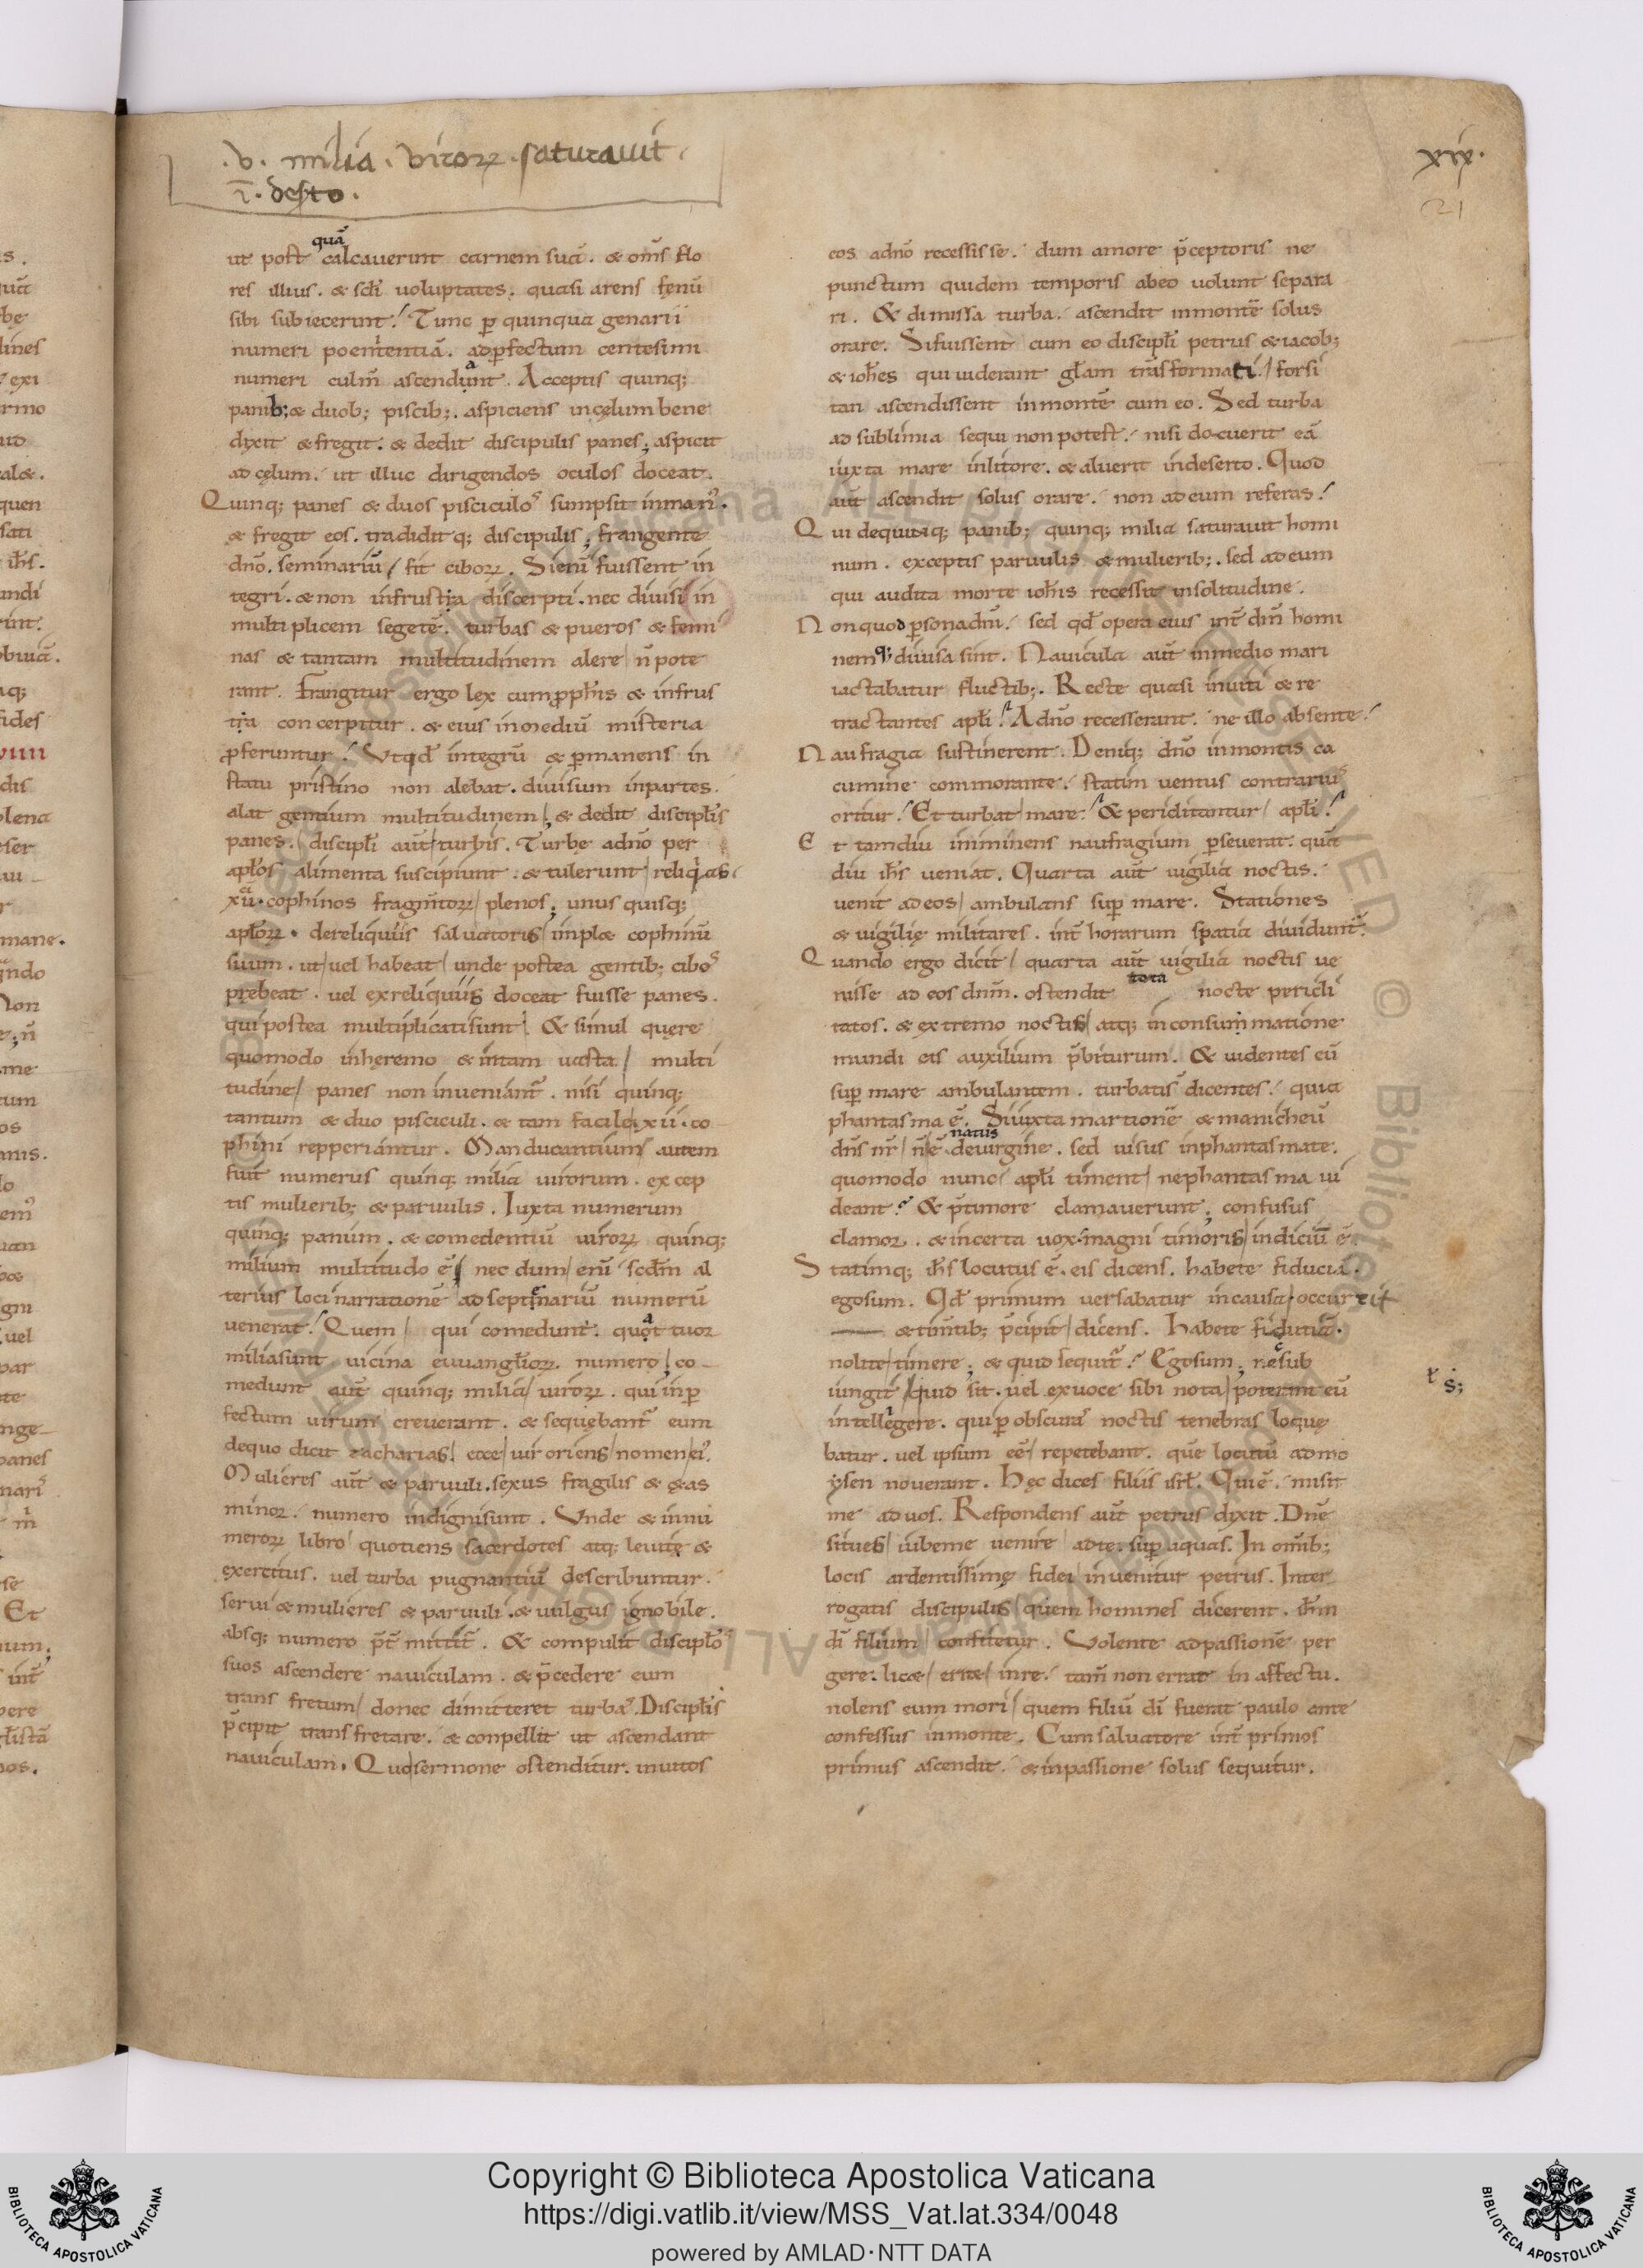 .v. milia . viroꝝ . saturauit .
ī . desto .
xix.
21
quā
ut post calcauerint carnem suā . & om̄s flo
res illius . & scl̄i uoluptates . quasi arens fęnū
sibi subiecerint. Tunc ꝑ quinquagenarii
numeri poenitentiā . ad ꝑfectum centesimi
numeri culm̄ ascendunt . Acceptis quinq;
panib; & duob; piscib; . aspiciens in cęlum bene
dixit & fregit . & dedit discipulis panes ; aspicit
ad cęlum . ut illuc dirigendos oculos doceat .
Quinq; panes & duos pisciculos sumpsit in man' .
& fregit eos . tradidit q; discipulis ; frangente
dn̄o . seminariū fit ciboꝝ . Si eni fuissent in
tegri . & non in frustra discerpti . nec diuisi in
multiplicem segetē . turbas & pueros & femi
nas & tantam multitudinem alere n̄ pote
rant . Frangitur ergo lex cum ꝓph̄is & in frus
tra concerpitur . & eius in mediū misteria
ꝓferuntur . Ut qd̄ integrū & ꝑmanens in
statu pristino non alebat . diuisum in partes .
alat gentium multitudinem ; & dedit discipl̄is
panes . discipl̄i aūt turbis . Turbę a dn̄o per
apl̄os alimenta suscipiunt . & tulerunt reliquias
xii . cophinos fragm̄toꝝ plenos ; unus quisq;
apl̄oꝝ . de reliquiis saluatoris implæ cophinū
suum . ut uel habeat unde postea gentib; cibos
prebeat . uel ex reliquiis doceat fuisse panes .
qui postea multiplicati sunt . & simul quęre
quomodo in heremo & in tam uasta multi
tudine panes non inueniant̄ . nisi quinq;
tantum & duo pisciculi . & tam facile xii . co
phini repperiantur . Manducantium autem
fuit numerus quinq; milia uirorum . excep
tis mulierib; & paruulis . Iuxta numerum
quinq; panum . & comedentiū uiroꝝ quinq;
milium multitudo ē . nec dum enī scd̄m al
terius loci narrationē ad septenariū numerū
uenerat . Quem qui comedunt . quattuor
milia sunt uicina euuangl̄ioꝝ . numero ; co
medunt aūt quinq; milia uiroꝝ . qui in ꝑ
fectum uirum creuerant . & sequębant̄ eum
de quo dicit zacharias . ecce uir oriens nomen ei' .
Mulieres aūt & paruuli . sexus fragilis & ętas
minor . numero indigni sunt . Unde & in nu
meroꝝ libro quotiens sacerdotes atq; leuitę &
exercitus . uel turba pugnantiū describuntur .
serui & mulieres & paruuli . & uulgus ignobile .
absq; numero p̄t̄mittit̄ . & compulit discipl̄os
suos ascendere nauiculam . & p̄cedere eum
trans fretum donec dimitteret turbas . Discipl̄is
p̄cipit transfretare . & conpellit ut ascendant
nauiculam . Quo sermone ostenditur . inuitos
eos a dn̄o recessisse . dum amore p̄ceptoris ne
punctum quidem temporis ab eo uolunt separa
ri . & dimissa turba . ascendit in montē solus
orare . Si fuissent cum eo discipl̄i petrus & iacob;
& ioh̄es qui uiderant gl̄am trāsformati . forsi
tan ascendissent in montē cum eo . Sed turba
ad sublimia sequi non potest . nisi docuerit eā
iuxta mare in litore . & aluerit in deserto . Quod
aūt ascendit solus orare . non ad eum referas .
Qui de quinq; panib; quinq; milia saturauit homi
num . exceptis paruulis & mulierib; . sed ad eum
qui audita morte ioh̄is recessit in solitudine .
Non quod ꝑsona dn̄i . sed qd̄ opera eius int̄ dm̄ homi
nemq; diuisa sint . Nauicula aūt in medio mari
iactabatur fluctib; . Recte quasi inuiti & re
tractantes apl̄i . A dn̄o recesserant . ne illo absente
Naufragia sustinerent . Deniq; dn̄o in montis ca
cumine commorante . statim uentus contrarius
oritur . Et turbat mare . & periclitantur apl̄i .
Et tamdiu imminens naufragium ꝑseuerat . quā
diu ih̄s ueniat . Quarta aūt uigilia noctis .
uenit ad eos ambulans suꝑ mare . Stationes
& uigilię militares . int̄ horarum spatia diuidunt̄ .
Quando ergo dicit quarta aūt uigilia noctis ue
tota
nisse ad eos dn̄m . ostendit nocte pericli
tatos . & extremo noctis atq; in consummatione
mundi eis auxilium p̄biturum . & uidentes eū
suꝑ mare ambulantem . turbati s̄ dicentes . quia
phantasma ē . Si iuxta martionē & manicheū
natus
dn̄s nr̄ n̄ ē de uirgine . sed uisus in phantasmate .
quomodo nunc apl̄i timent ne phantasma ui
deant . & p̄ timore clamauerunt ; confusus
clamor . & incerta uox magni timoris indiciū ē .
Statimq; ih̄s locutus ē . eis dicens . habete fiduciā .
ego sum . Qd̄ primum uersabatur in causa . occurrit
& tim̄tib; p̄cipit dicens . Habete fiduciā .
nolite timere ; & quid sequit̄ . Ego sum ; nec sub
iungit quid sit . uel ex uoce sibi nota poterant eū
s;
intellegere . qui ꝑ obscuras noctis tenebras loquę
batur . uel ipsum eē repetebant . quē locutū ad mo
ysen nouerant . Hęc dices filiis isrl̄ . Qui ē . misit
me ad uos . Respondens aūt petrus dixit . Dn̄e
si tu es iube me uenire ad te . suꝑ aquas . In om̄ib;
locis ardentissimę fidei inuenitur petrus . Inter
rogatis discipulis quem homines dicerent . ih̄m
dī filium confitetur . Volente ad passionē per
gere . licæ erret in re . tam̄ non errat in affectu .
nolens eum mori quem filiū dī fuerat paulo ante
confessus in monte . Cum saluatore int̄ primos
primus ascendit . & in passione solus sequitur .
Copyright © Biblioteca Apostolica Vaticana
https://digi.vatlib.it/view/MSS_Vat.lat.334/0048
powered by AMLAD·NTT DATA
BIBLIOTECA APOSTOLICA VATICANA
BIBLIOTECA APOSTOLICA VATICANA